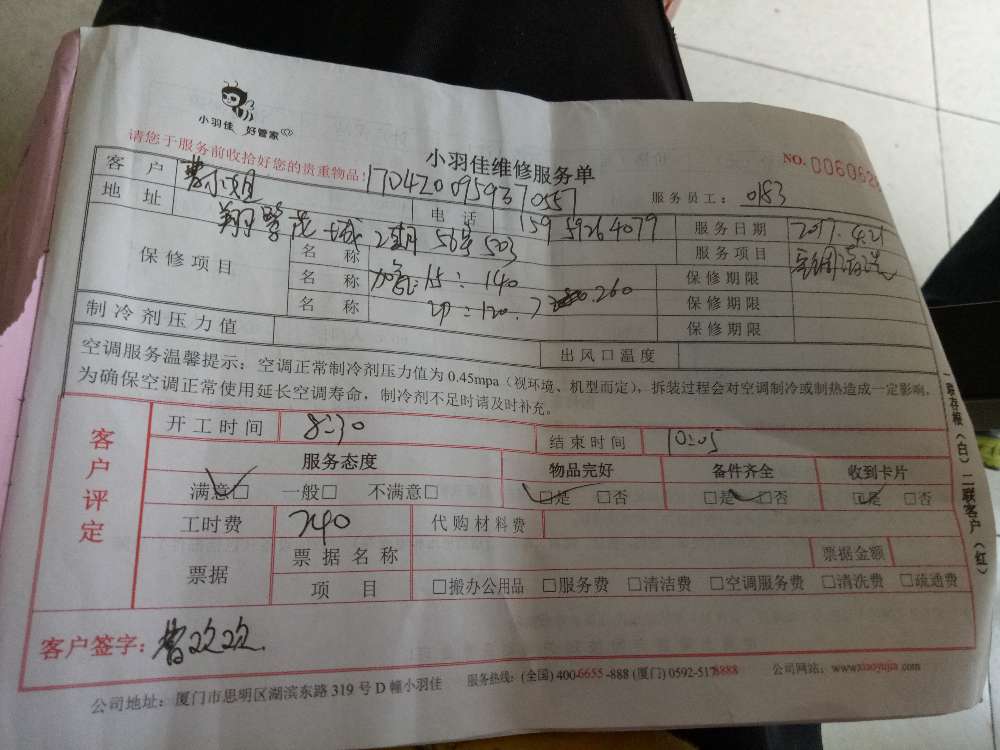 小羽佳 好管家
请您于服务前收拾好您的贵重物品!
小羽佳维修服务单
NO. 006062
客户 小姐 1704200959370557
服务员工: 0183
地址 翔鹭花城2期56号503
电话 15959264079
服务日期 2017.4.21
服务项目 空调清洗
保修项目
名称 加氟:1.5:140
保修期限
名称 2P:120. 260
保修期限
名称
保修期限
制冷剂压力值
出风口温度
空调服务温馨提示:空调正常制冷剂压力值为0.45mpa(视环境、机型而定),拆装过程会对空调制冷或制热造成一定影响,
为确保空调正常使用延长空调寿命,制冷剂不足时请及时补充。
客户评定
开工时间 8:30
结束时间 10:05
服务态度 物品完好 备件齐全 收到卡片
满意□ 一般□ 不满意□ □是 □否 □是 □否 □是 □否
工时费 740 代购材料费
票据
票据名称 票据金额
项目 □搬办公用品 □服务费 □清洁费 □空调服务费 □清洗费 □疏通费
客户签字: 曾欢欢
公司地址:厦门市思明区湖滨东路319号D幢小羽佳
服务热线:(全国)400-6655-888(厦门)0592-5178888
公司网站:www.xiaoyujia.com
一联存根(白)二联客户(红)